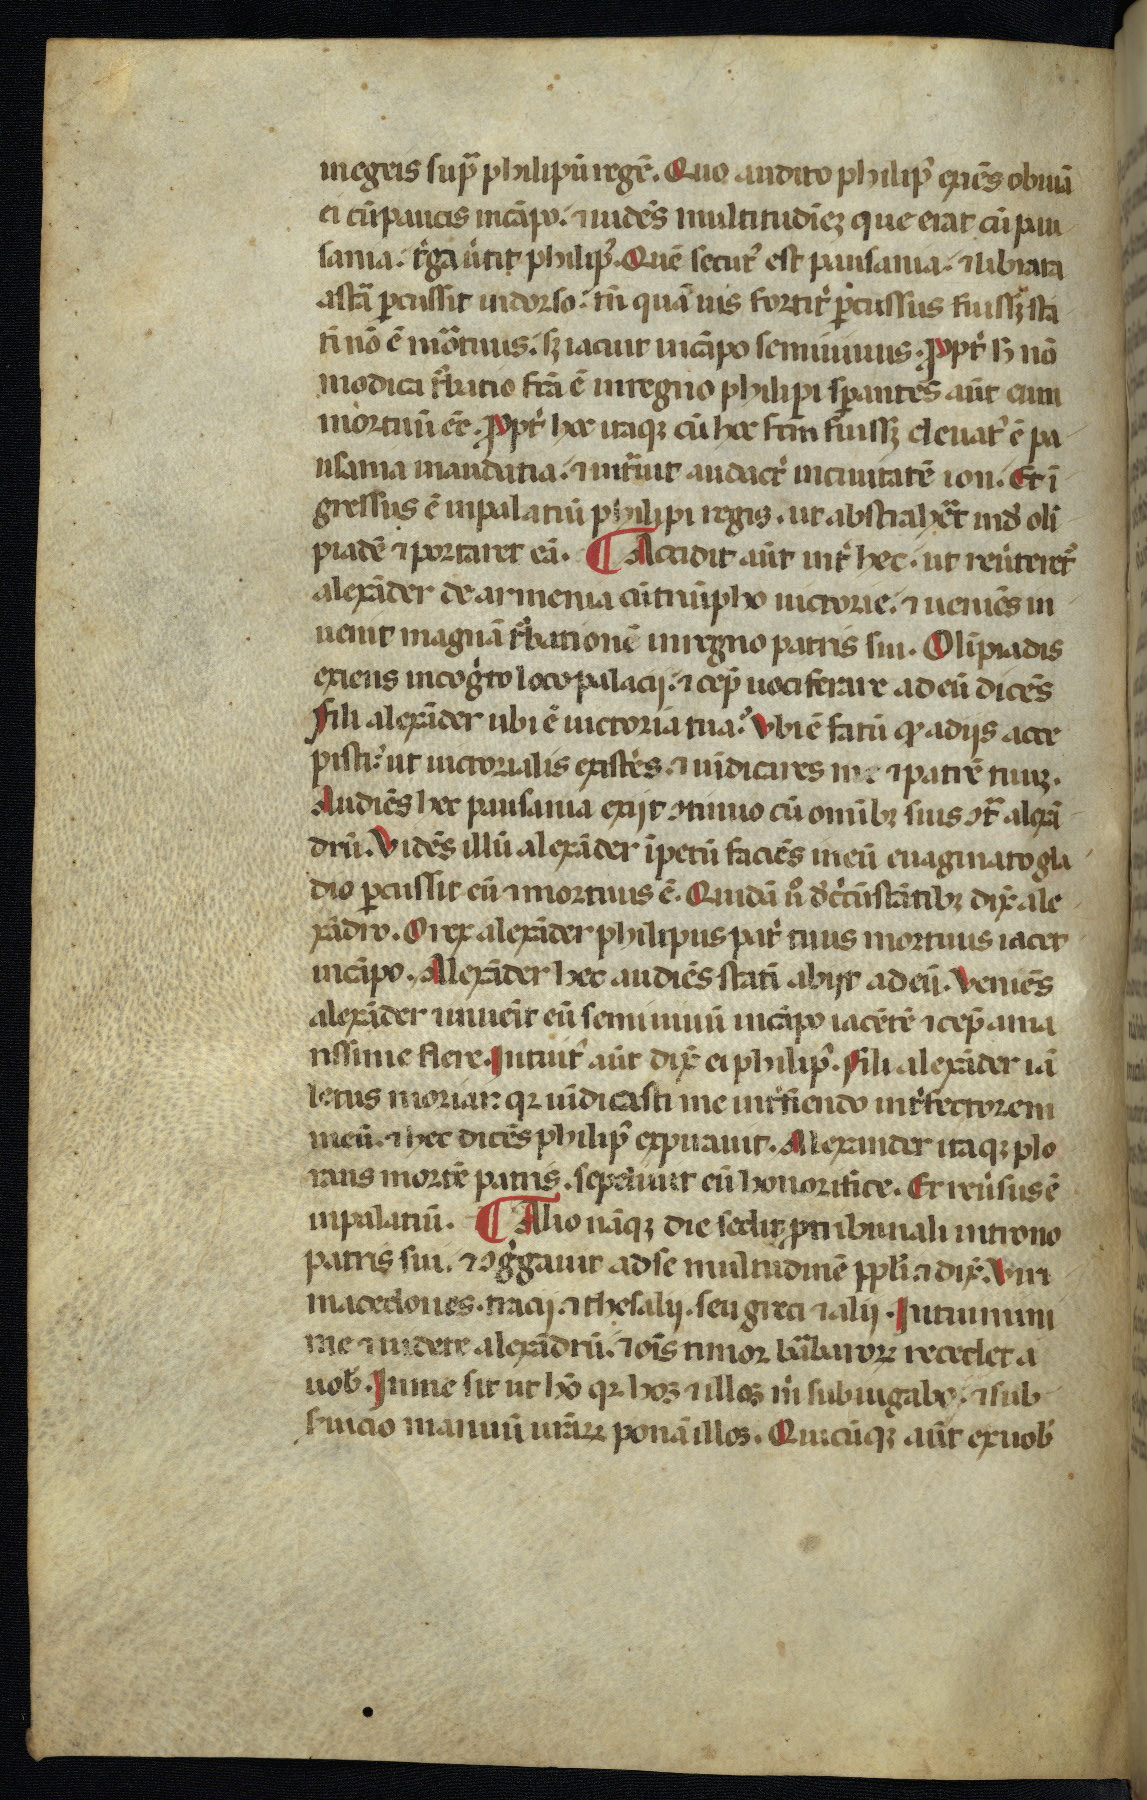 in egeis sup̄ philipū regē. Quo audito philip᾽ exiēs obuiā
ei cū paucis in cāpo. ⁊ uidēs multitudīeꝫ que erat cū pau
sania. t᾽ga ūtit philip᾽. Quē secut᾽ est pausania. ⁊ librata
astā ꝑcussit in dorso. tn̄ quāuis fortit᾽ ꝑcussus fuissꝫ sta
tī nō ē mortuus. sꝫ iacuit in cāpo semiuiuus. Ppt᾽ h̄ nō
modica t᾽batio fc̄a ē in regno philipi sꝑantes aūt eum
mortuū eē. Ppt᾽ hec itaqꝫ cū hec fc̄m fuissꝫ eleuat᾽ ē pa
usania in audatia. ⁊ int᾽uit audact᾽ in ciuitatē ion. Et ī
gressus ē in palatiū philipi regis. ut abstrah᾽et ind᾽ oli
piadē ⁊ portaret eā. ¶ Accidit aūt int᾽ hec. ut reūteret᾽
alexāder de armenia cū triūpho uictorie. ⁊ ueniēs in
uenit magnā t᾽bationē in regno patris sui. Olīpiadis
exiens in cog᾽to loco palacij. ⁊ cep̄ uociferare ad eū dicēs
Fili alexāder ubi ē uictoria tua? Vbi ē fatū qd̄ a dijs acce
pisti? ut uictorialis existēs. ⁊ uīdicares me ⁊ patrē tuuꝫ.
Audiēs hec pausania exijt ꝯtinuo cū omībꝫ suis ꝯt᾽ alexā
drū. Vidēs illū alexāder īpetū faciēs in eū euaginato gla
dio ꝑcussit eū ⁊ mortuus ē. Quidā u᾽ d᾽ circūstātibꝫ dix᾽ ale
xādro. O rex alexāder philipus pat᾽ tuus mortuus iacet
in cāpo. Alexāder hec audiēs statī abijt ad eū. Veniēs
alexāder inuēit eū semiuiuū in cāpo iacētē ⁊ cep̄ ama
rissime flere. Intuit᾽ aūt dix᾽ ei philip᾽. Fili alexāder iā
letus moriar: qꝛ uīdicasti me int᾽ficiendo int᾽fectorem
meū. ⁊ hec dicēs philip᾽ expirauit. Alexander itaqꝫ plo
rans mortē patris. sepeliuit eū honorifice. Et reūsus ē
in palatiū. ¶ Alio nāqꝫ die sedit ꝓ tribunali in trono
patris sui. ⁊ ꝯg᾽gauit ad se multitudinē ppli᾽. ⁊ dix᾽. Viri
macedones. tracij. ⁊ thesalij. seu greci ⁊ alij. Intuimini
me ⁊ uidete alexādrū. ⁊ oīs timor barbaroꝝ recedet a
uob᾽. In me sit ut hō qꝛ hos ⁊ illos m᾽ subiugabo. ⁊ sub
s᾽uicio manuū ur̄aꝝ ponā illos. Quicūqꝫ aūt ex uob᾽